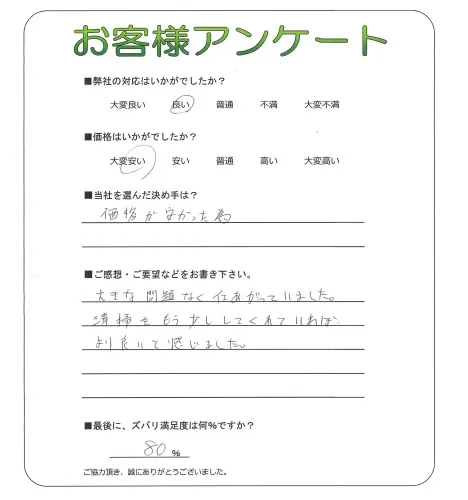 お客様アンケート
■弊社の対応はいかがでしたか？
大変良い 良い 普通 不満 大変不満
■価格はいかがでしたか？
大変安い 安い 普通 高い 大変高い
■当社を選んだ決め手は？
価格が安かった為
■ご感想・ご要望などをお書き下さい。
大きな問題なく仕あがっていました。
清掃をもう少ししてくれていれば、
より良いと感じました。
■最後に、ズバリ満足度は何％ですか？
80 %
ご協力頂き、誠にありがとうございました。